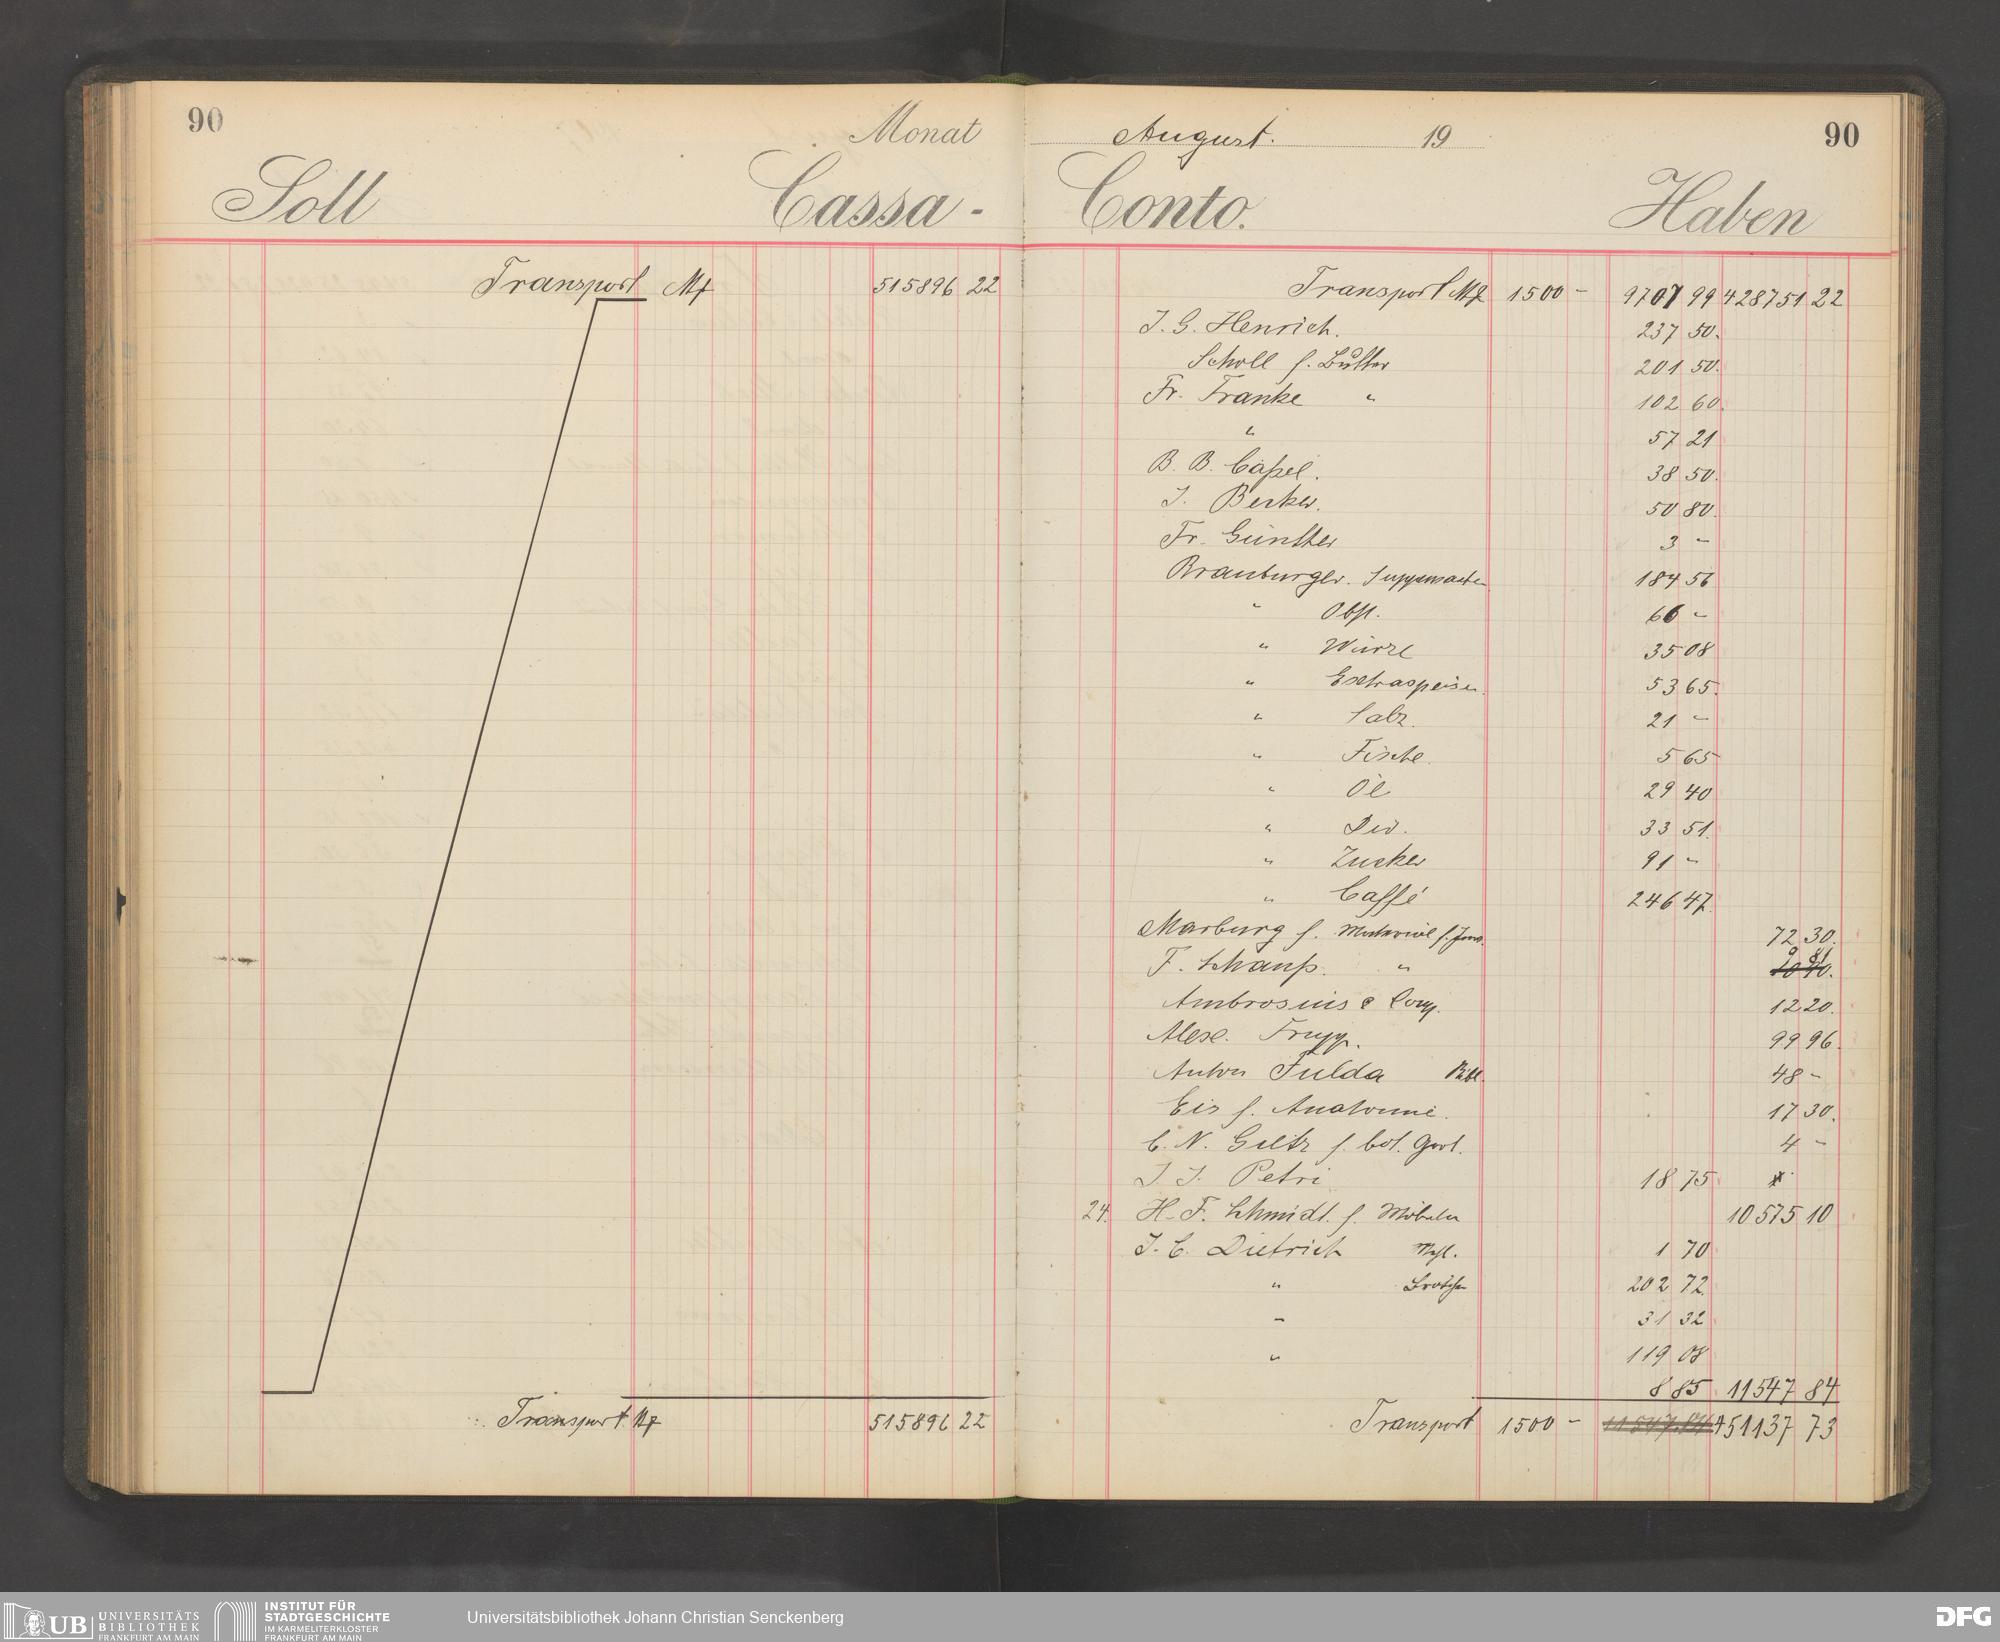 90
Monat
Soll
Cassa-
Transport M 515896 22
Transport M 515896 22
August. 19
90
Conto.
Haben
Transport M 1500 - 9707 99 428751 22
J. G. Henrich. 237 50.
Scholl f. Butter 201 50.
Fr. Franke " 102 60.
" 57 21
B. B. Caßel. 38 50.
J. Becker. 50 80.
Fr. Günther 3 -
Branburger. 184 56
" Obst. 66 -
" Würze 35 08
" Extraspeisen 53 65.
" Salz. 21 -
" Fische 5 65
" Öl 29 40
" Div. 33 51.
" Zucker 91 -
" Caffé 246 47.
Marburg f. 72 30.
F. Schanß. "
Ambrosius & Comp. 12 20.
Alex. 99 96.
Anton Fulda Bibl. 48 -
Eis f. Anatomie. 17 30.
C. N. Geltz f. bot. Gart. 4 -
J. J. Petri 18 75
24. H. F. Schmidt. f. Möbeln 10575 10
J. C. Dietrich Mehl. 1 70
" Brötchen 202 72.
" 31 32
" 119 08
8 85 11547 84
Transport 1500 - 11547.84 451137 73
UB
UNIVERSITÄTS
BIBLIOTHEK
FRANKFURT AM MAIN
INSTITUT FÜR
STADTGESCHICHTE
IM KARMELITERKLOSTER
FRANKFURT AM MAIN
Universitätsbibliothek Johann Christian Senckenberg
DFG